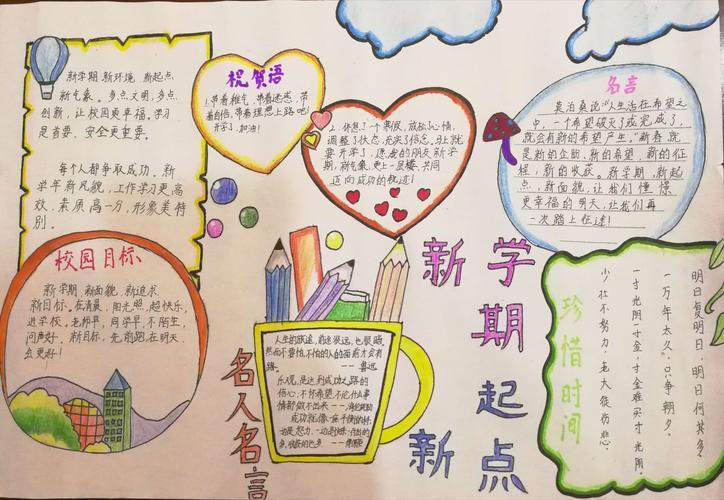 新学期,新环境,新起点
新气象。多点文明,多点
创新,让校园更幸福。学习
是首要,安全更重要。
每个人都争取成功,新
学年新风貌,工作学习更高
效,素质高一分,形象美特
别。
祝贺语
1.带着稚气,带着迷惑,带
着自信,带着理想上路吧!
开学了,加油!
2.休息了一个寒假,放松了心情,
调整了状态,充实了信念。马上就
要开学了,愿我的朋友新学
期,新气象,更上一层楼,共同
迈向成功的征途!
名言
莫泊桑说"人生活在希望之
中,一个希望破灭了或完成了,
就会有新的希望产生。"新春就
是新的企盼、新的希望,新的征
程,新的收获。新学期,新起
点,新面貌,让我们憧憬
更幸福的明天,让我们再
一次踏上征途!
校园目标
新学期,新面貌,新追求
新目标。在清晨,阳光照,超快乐,
进学校。老师早,同学早,不陌生,
问声好。新目标,先前跑,在明天
么更好!
新学期
新起点
名人名言
人生的旅途,前途很远,也很暗
然而不要怕,不怕的人的面前才会有
路。——鲁迅
乐观,是达到成功之路的
信心;不怀希望,不论什么事
情都做不出来——海伦凯勒
成功就像一座平衡的桥
珍惜时间
明日复明日,明日何其多?
一万年太久,只争朝夕。
一寸光阴一寸金,寸金难买寸光阴。
少壮不努力,老大徒伤悲。